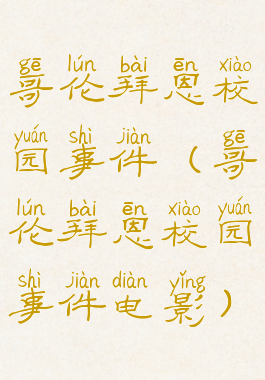 gē lún bài ēn xiào
哥伦拜恩校
yuán shì jiàn gē
园事件（哥
lún bài ēn xiào yuán
伦拜恩校园
shì jiàn diàn yǐng
事件电影）